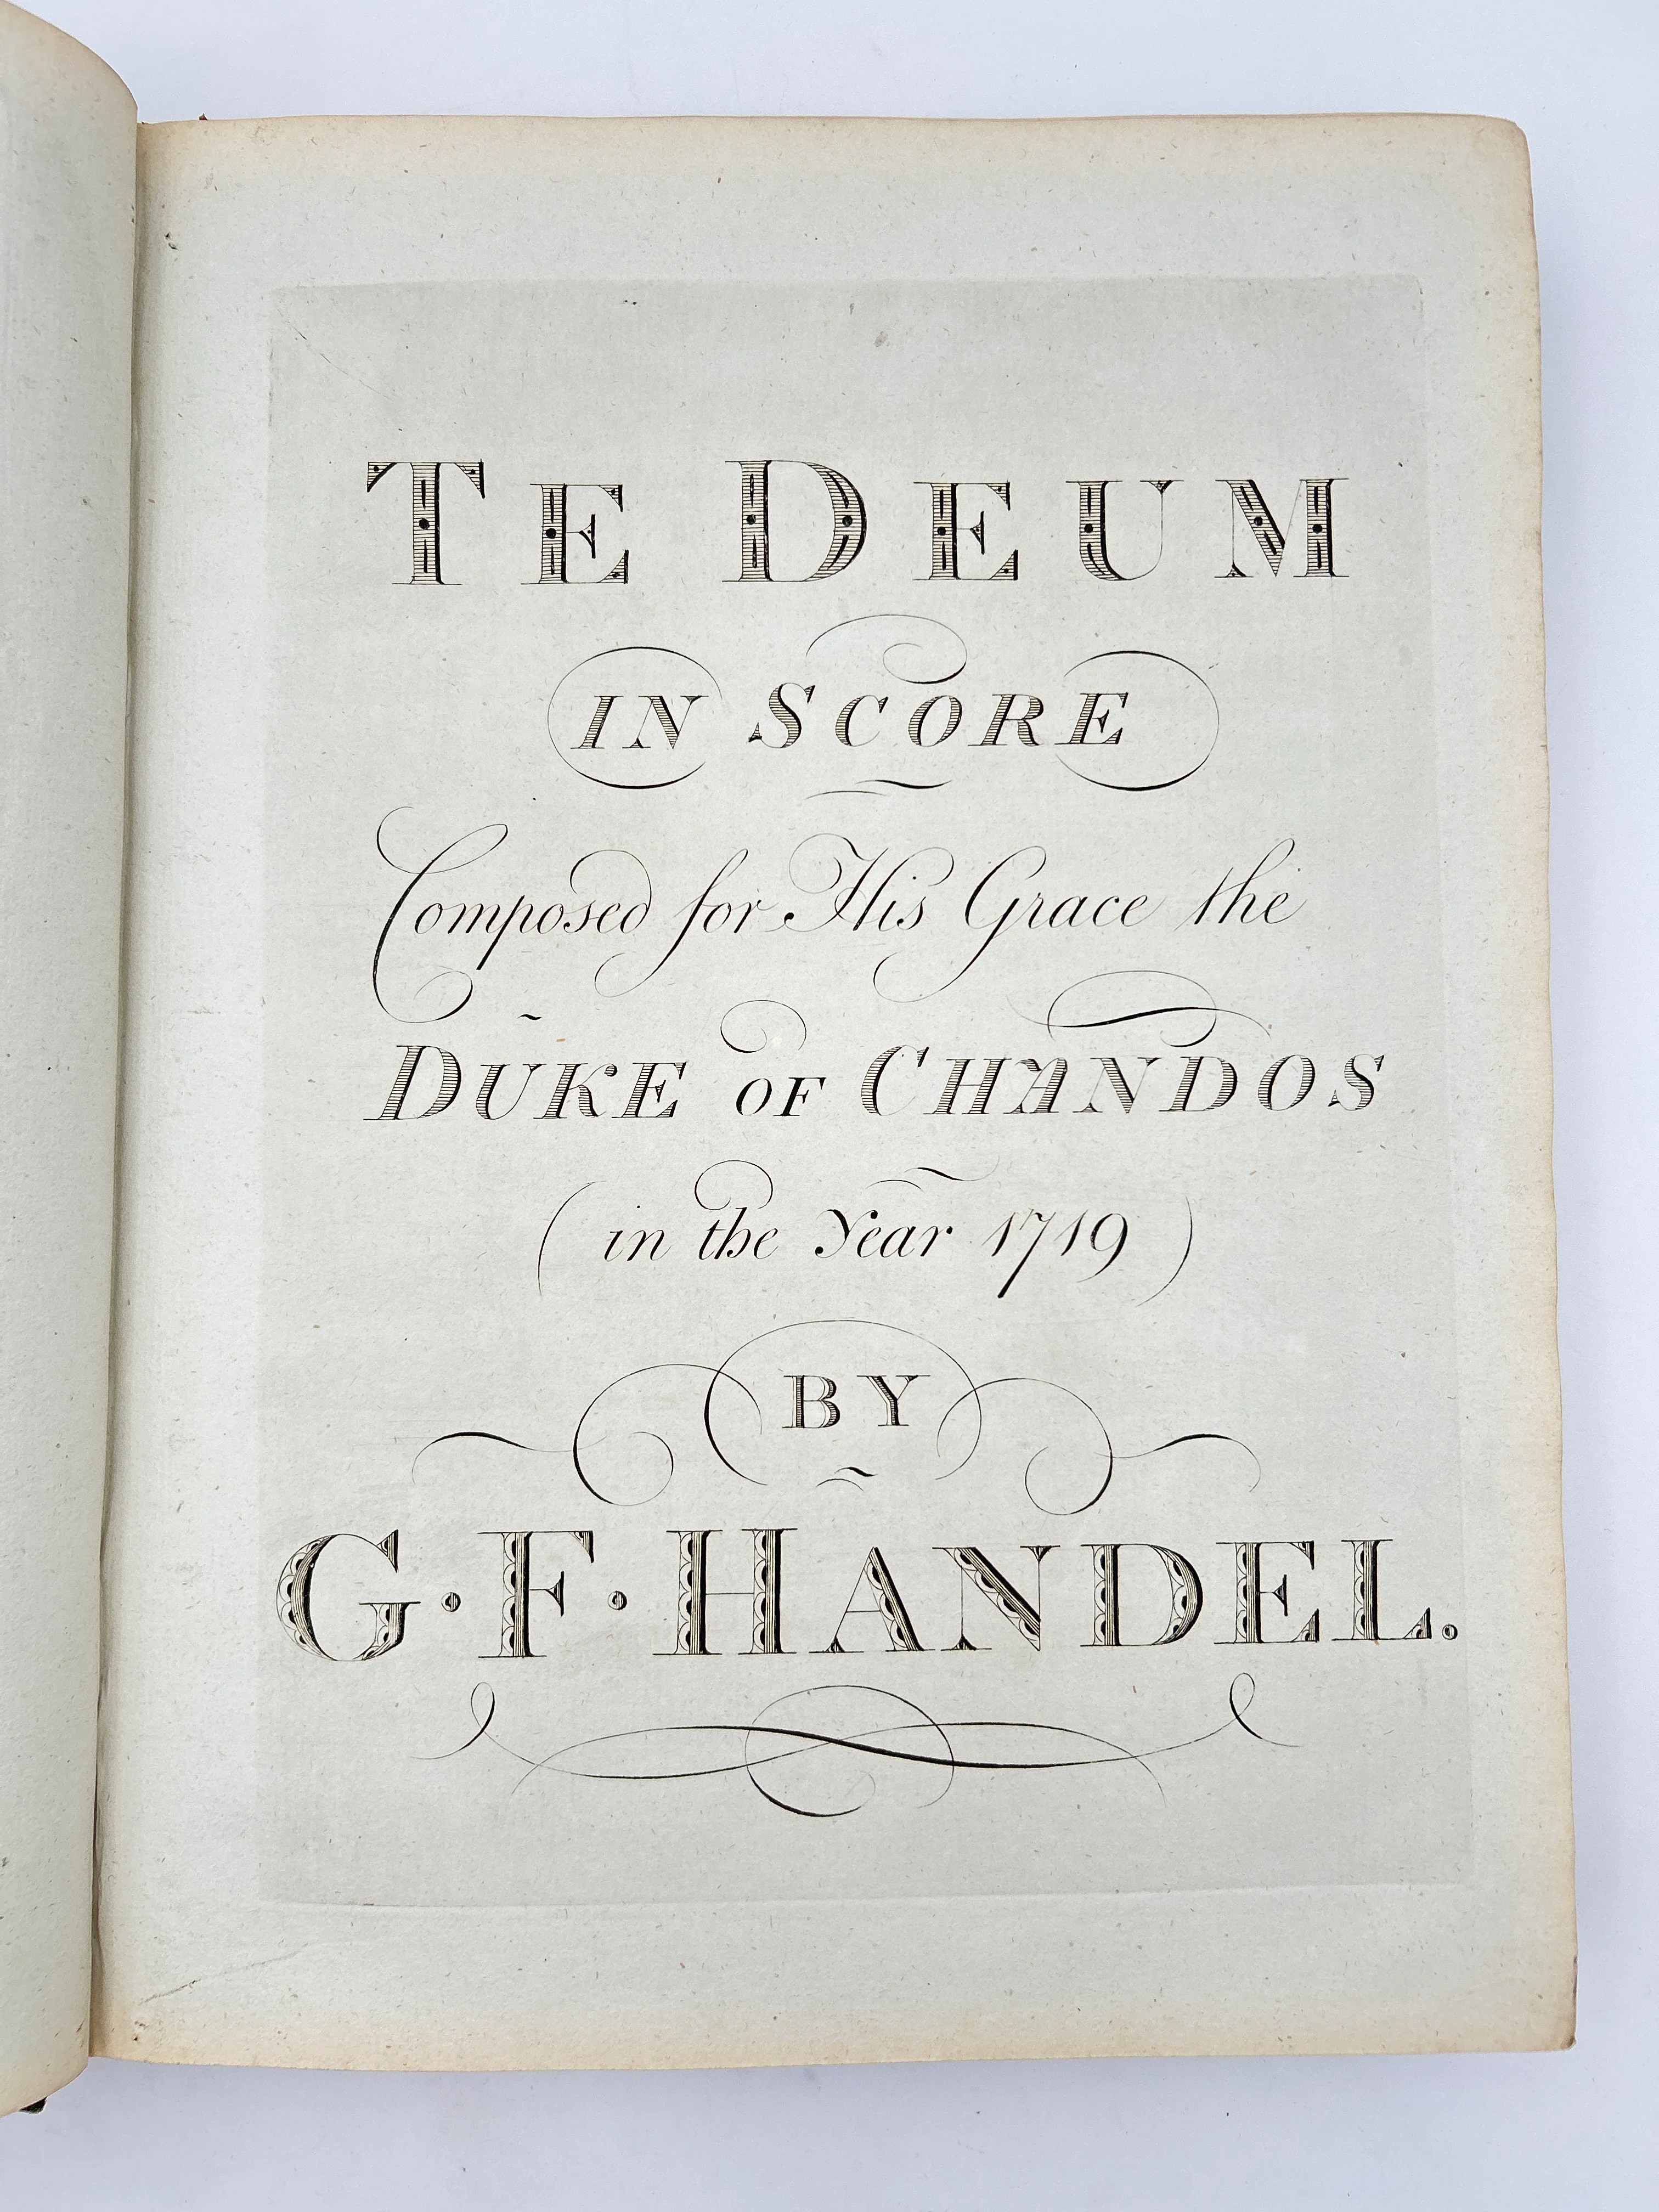 TE DEUM
IN SCORE
Composed for His Grace the
DUKE OF CHANDOS
(in the Year 1719)
BY
G·F·HANDEL.